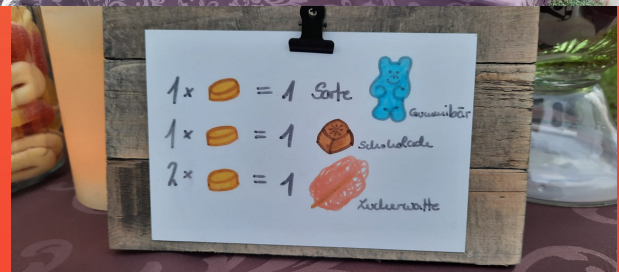 1x = 1 Sorte
Gummibär
1x = 1
Schokolade
2x = 1
Zuckerwatte